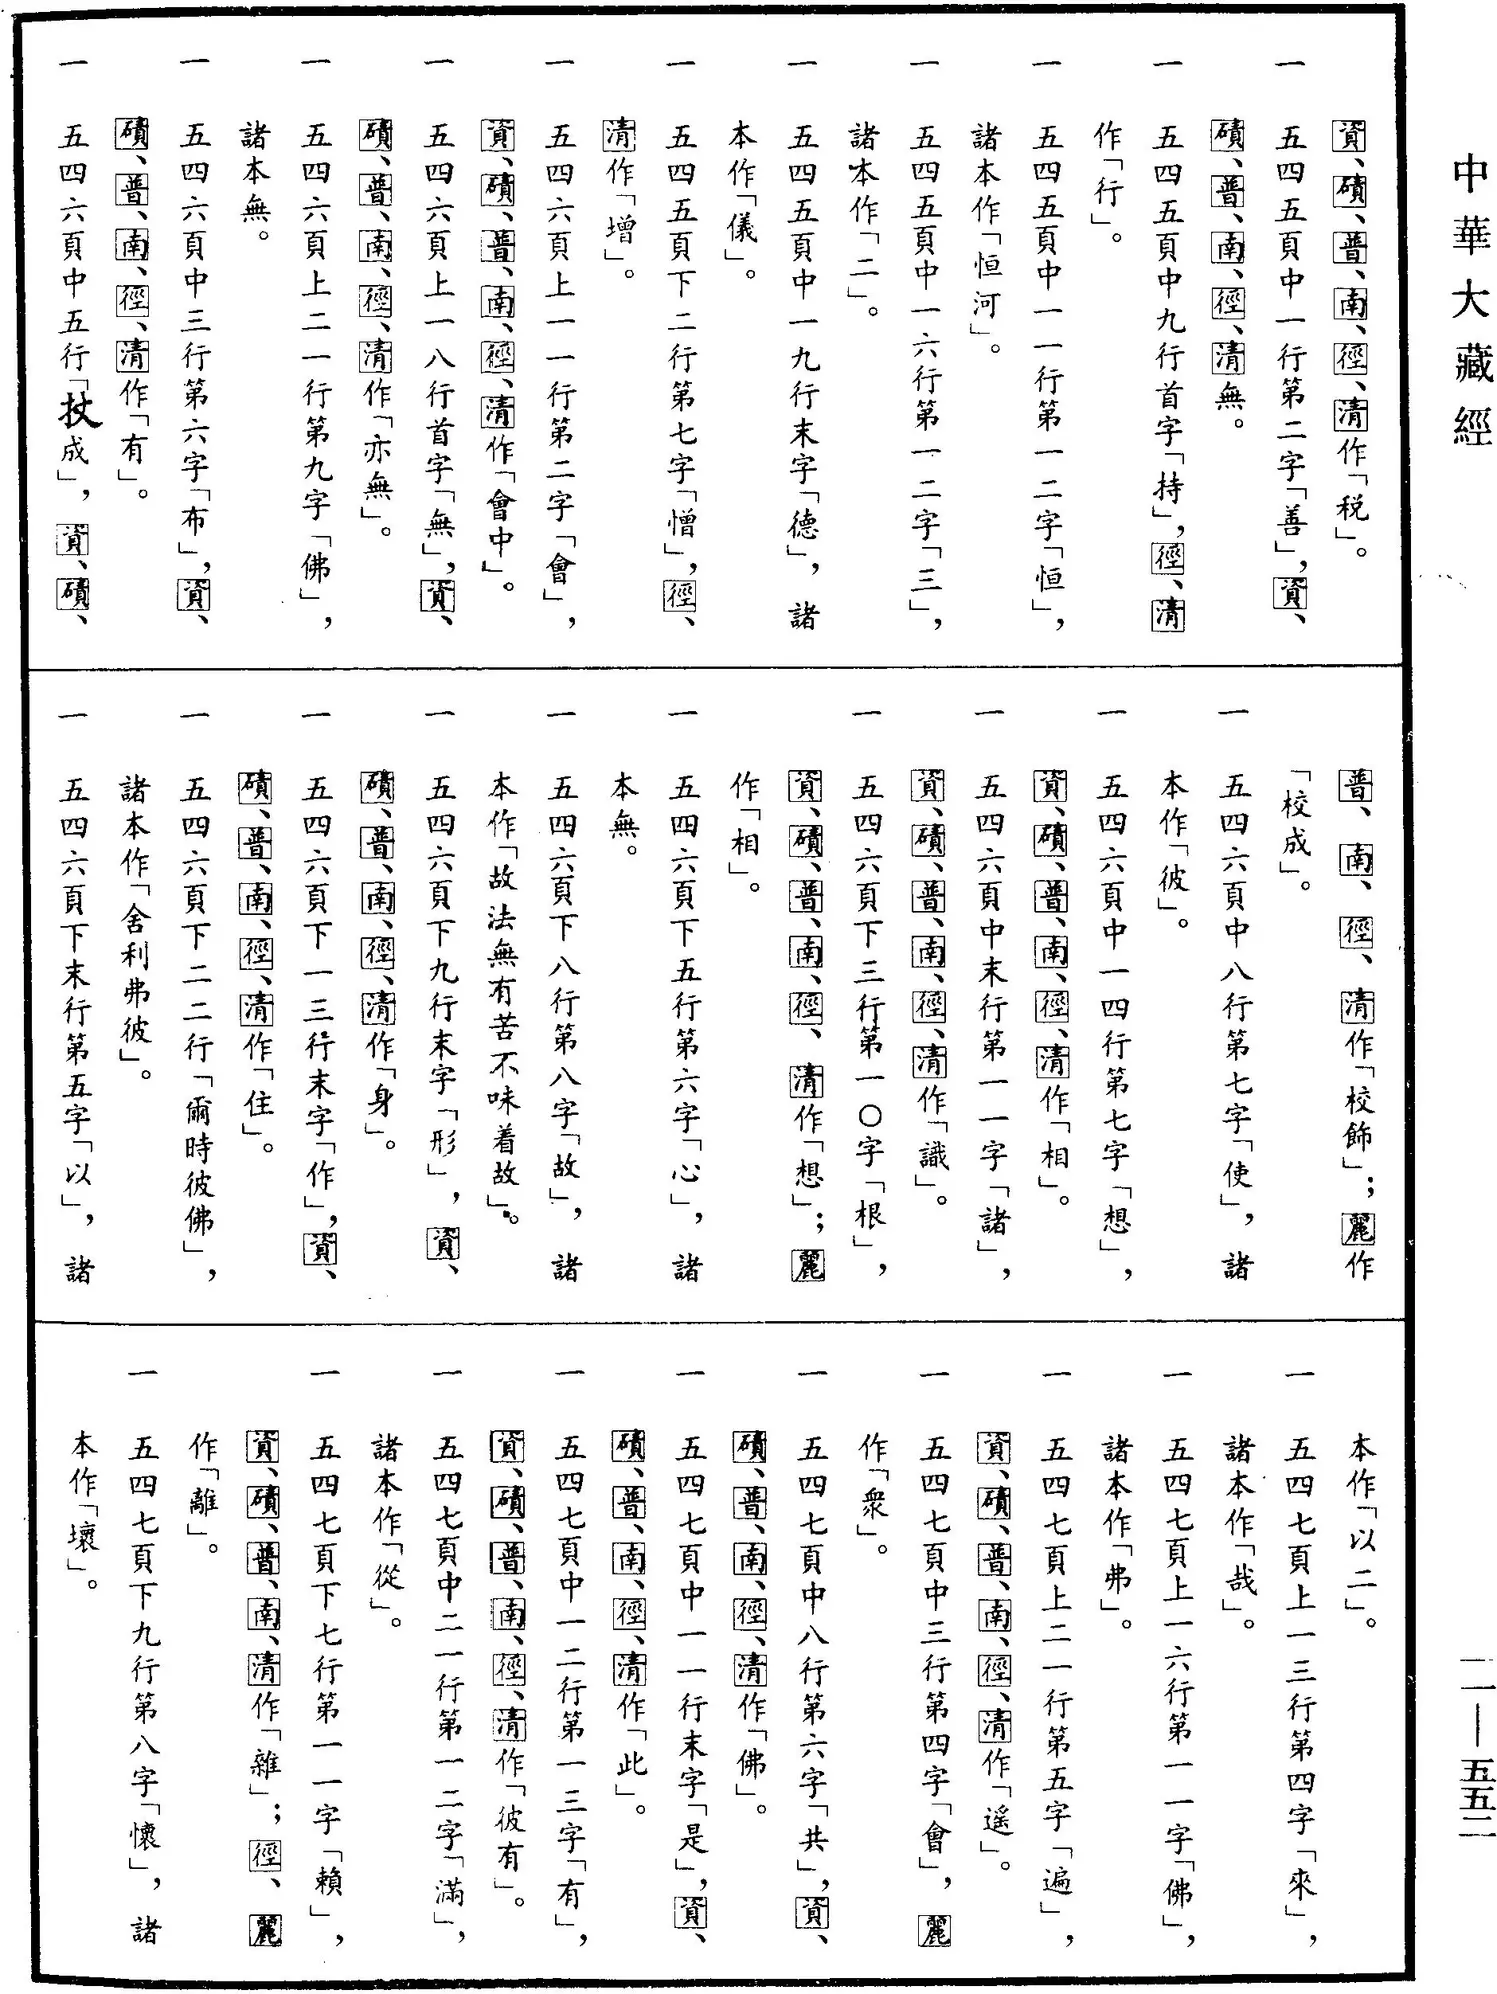 中華大藏經
資、磧、普、南、徑、清作「税」。
一　五四五頁中一行第二字「善」，資、
磧、普、南、徑、清無。
一　五四五頁中九行首字「持」，徑、清
作「行」。
一　五四五頁中一一行第一二字「恒」，
諸本作「恒河」。
一　五四五頁中一六行第一二字「三」，
諸本作「二」。
一　五四五頁中一九行末字「德」，諸
本作「儀」。
一　五四五頁下二行第七字「憎」，徑、
清作「增」。
一　五四六頁上一一行第二字「會」，
資、磧、普、南、徑、清作「會中」。
一　五四六頁上一八行首字「無」，資、
磧、普、南、徑、清作「亦無」。
一　五四六頁上二一行第九字「佛」，
諸本無。
一　五四六頁中三行第六字「布」，資、
磧、普、南、徑、清作「有」。
一　五四六頁中五行「扙成」，資、磧、
普、南、徑、清作「校飾」；麗作
「校成」。
一　五四六頁中八行第七字「使」，諸
本作「彼」。
一　五四六頁中一四行第七字「想」，
資、磧、普、南、徑、清作「相」。
一　五四六頁中末行第一一字「諸」，
資、磧、普、南、徑、清作「識」。
一　五四六頁下三行第一〇字「根」，
資、磧、普、南、徑、清作「想」；麗
作「相」。
一　五四六頁下五行第六字「心」，諸
本無。
一　五四六頁下八行第八字「故」，諸
本作「故法無有苦不味着故」。
一　五四六頁下九行末字「形」，資、
磧、普、南、徑、清作「身」。
一　五四六頁下一三行末字「作」，資、
磧、普、南、徑、清作「住」。
一　五四六頁下二二行「爾時彼佛」，
諸本作「舍利弗彼」。
一　五四六頁下末行第五字「以」，諸
本作「以二」。
一　五四七頁上一三行第四字「來」，
諸本作「哉」。
一　五四七頁上一六行第一一字「佛」，
諸本作「弗」。
一　五四七頁上二一行第五字「遍」，
資、磧、普、南、徑、清作「遥」。
一　五四七頁中三行第四字「會」，麗
作「衆」。
一　五四七頁中八行第六字「共」，資、
磧、普、南、徑、清作「佛」。
一　五四七頁中一一行末字「是」，資、
磧、普、南、徑、清作「此」。
一　五四七頁中一二行第一三字「有」，
資、磧、普、南、徑、清作「彼有」。
一　五四七頁中二一行第一二字「滿」，
諸本作「從」。
一　五四七頁下七行第一一字「賴」，
資、磧、普、南、清作「雜」；徑、麗
作「離」。
一　五四七頁下九行第八字「懷」，諸
本作「壞」。
一一—五五二